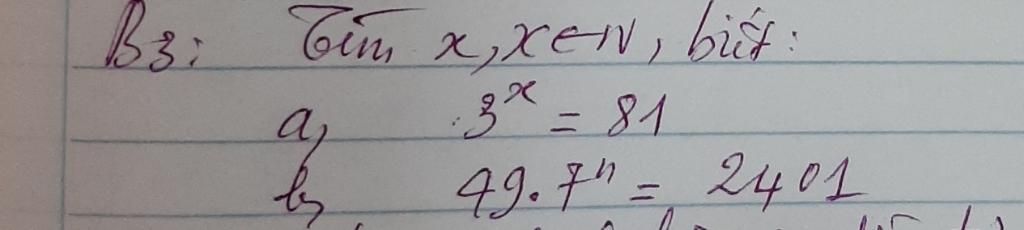 B3: Tìm x, x∈N, biết:
a, 3ˣ = 81
b, 49.7ⁿ = 2401